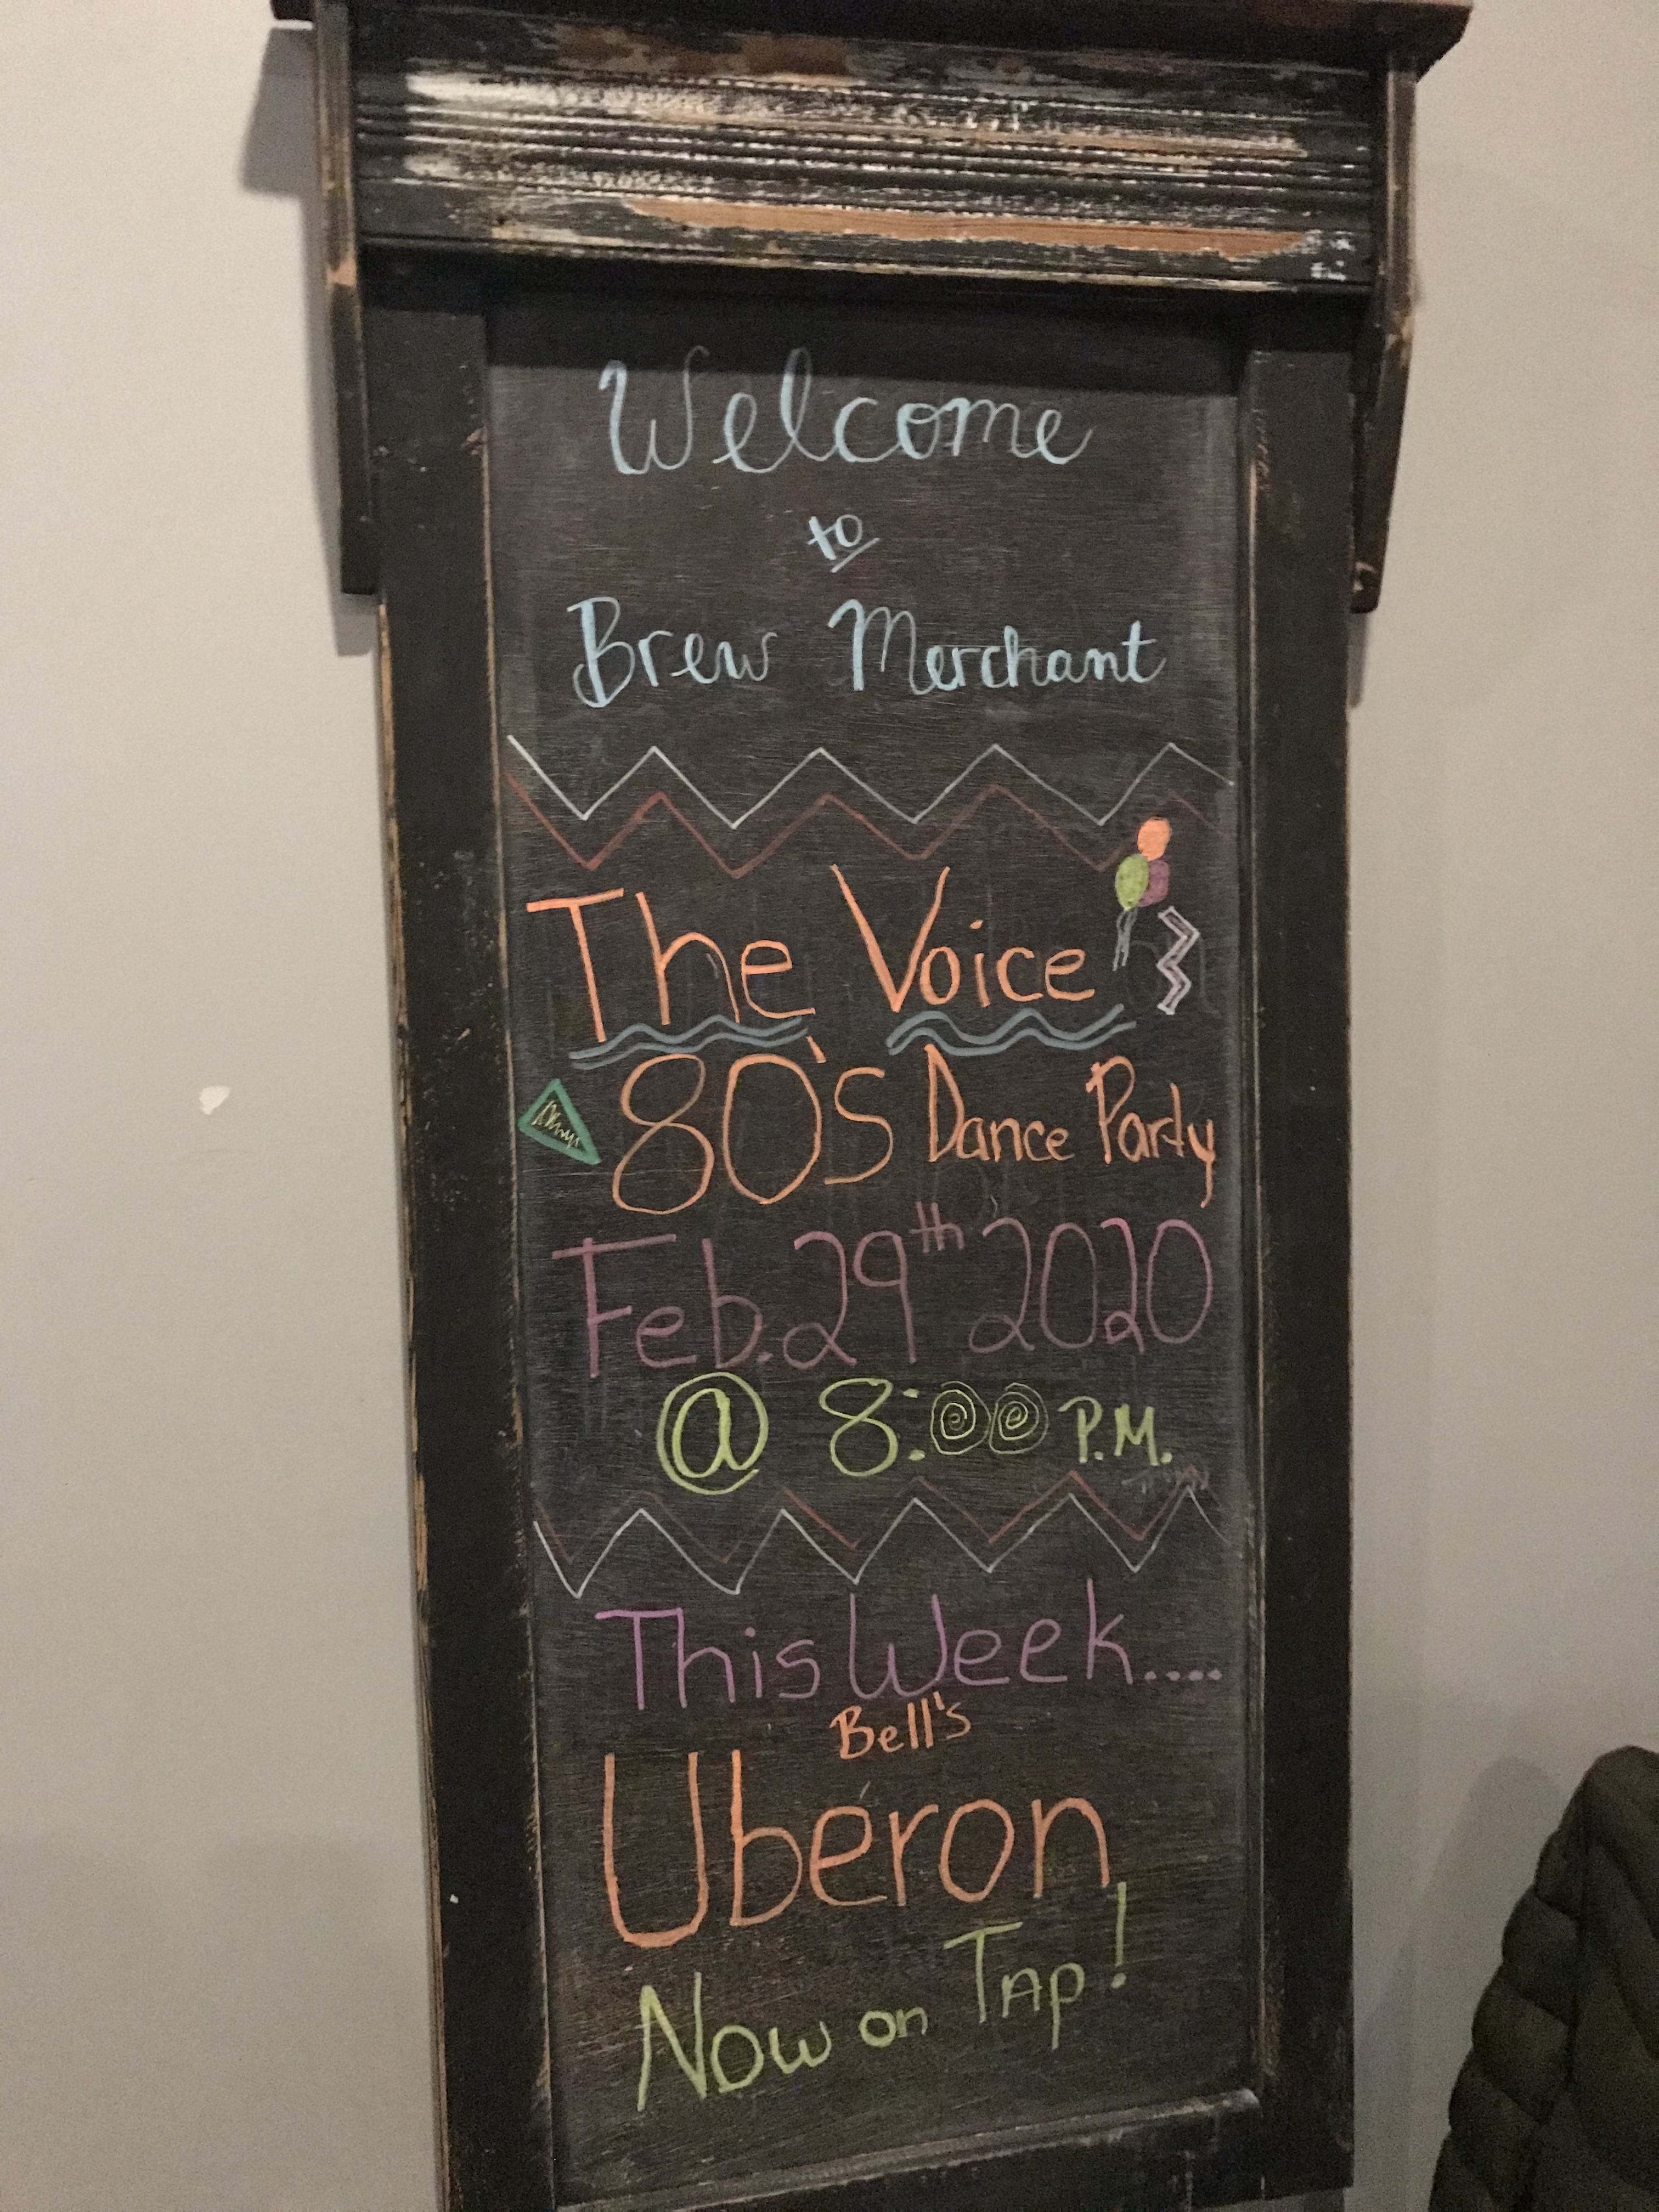 Welcome
to
Brew Merchant
The Voice
80's Dance Party
Feb. 29th 2020
@ 8:00 P.M.
This Week....
Bell's
Uberon
Now on Tap!